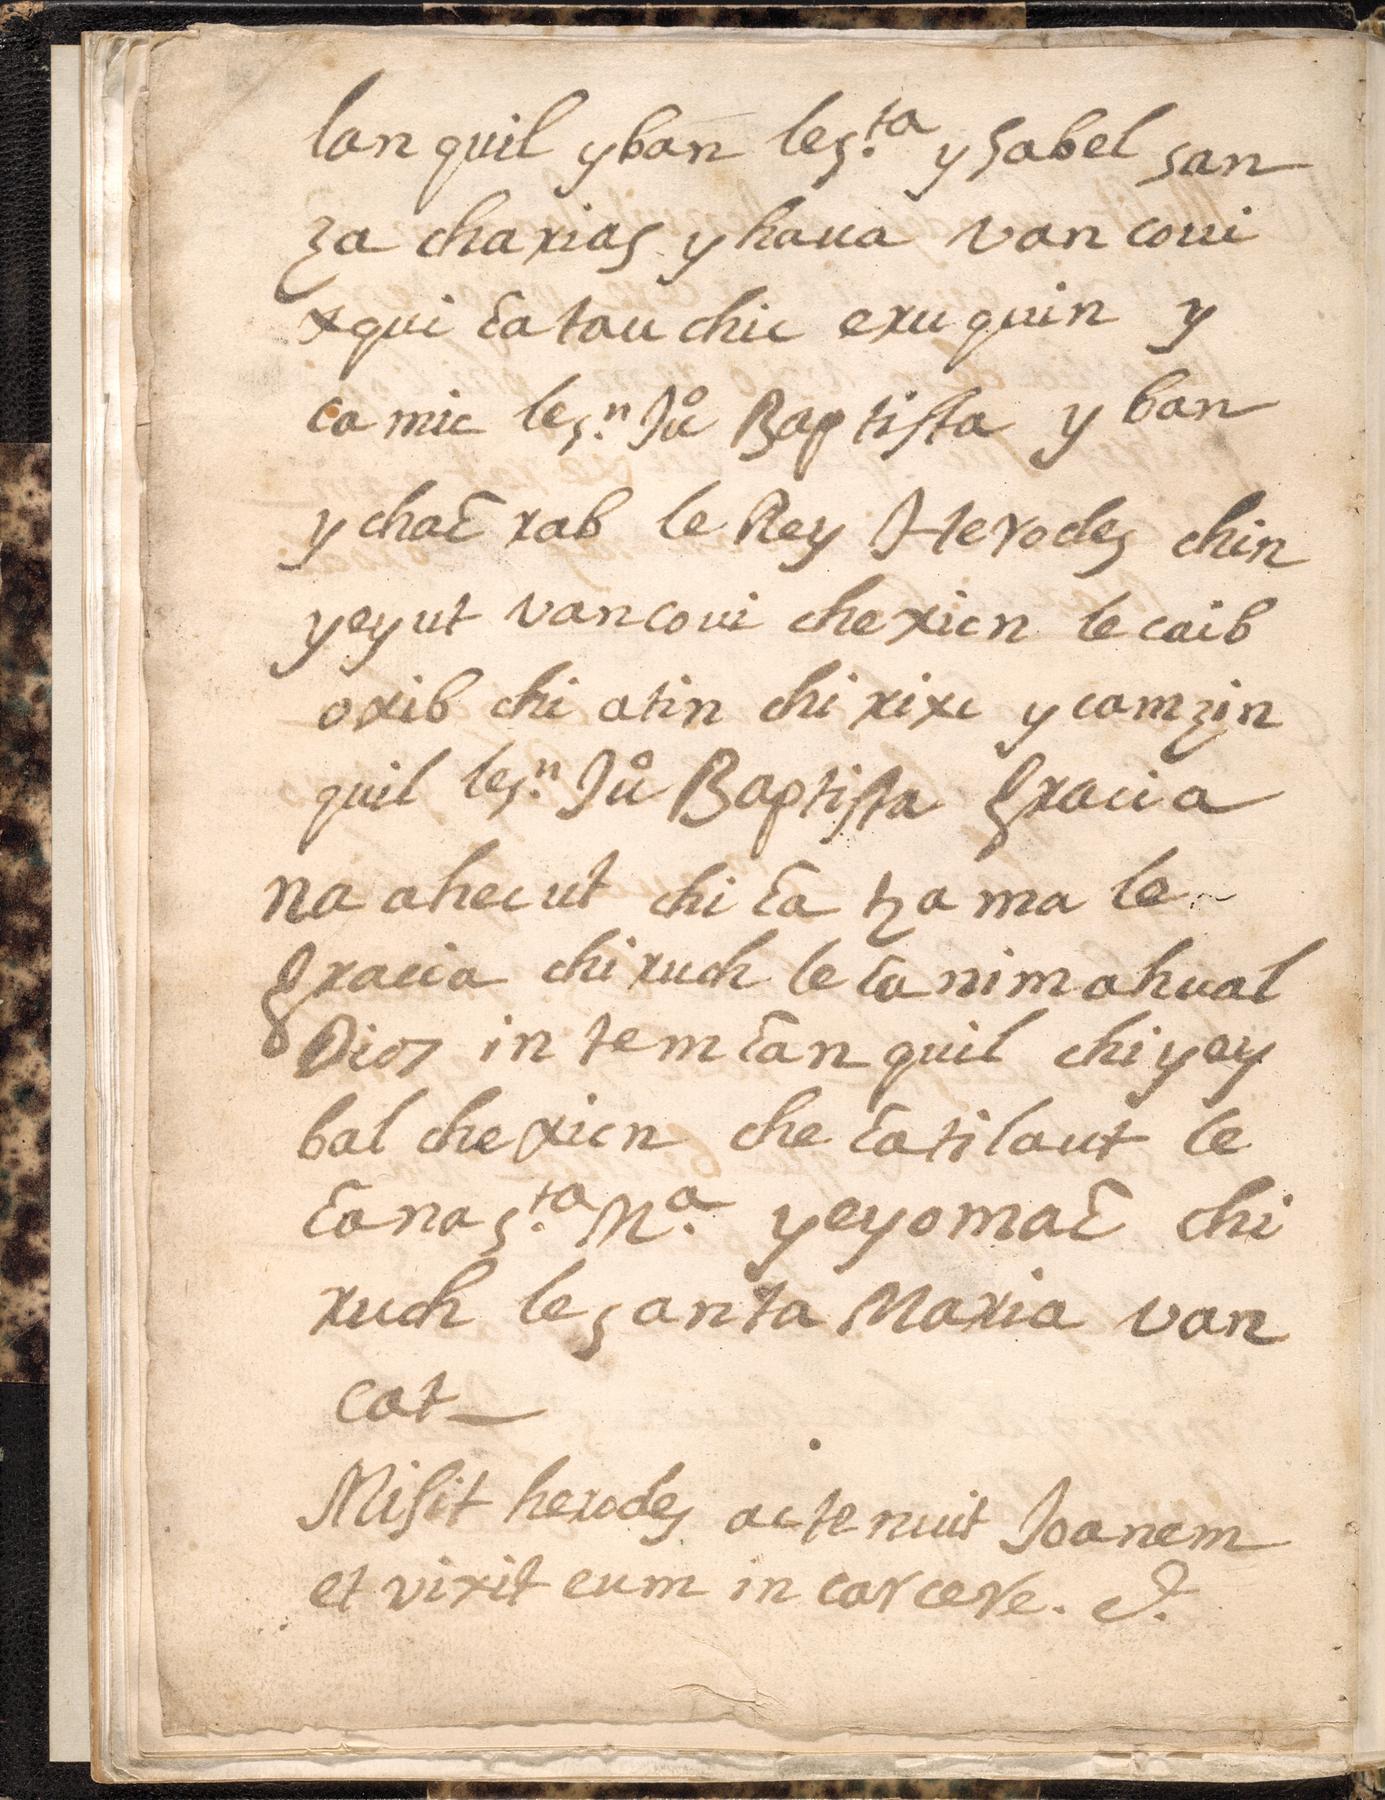 lan quil yban les.ta ysabel san
za charias yhaua van coui
xqui ɛatau chic exuquin y
camic les.n Juº Baptista y ban
ychaɛ rab le Rey Herodes chin
yeyut vancoui chericn le caib
oxib chi atin chi rixc ycamzin
quil les.n Juº Baptista gracia
na ahecut chi ɛa tza ma le
gracia chiruch le ɛanimahual
Dios in tem ɛan quil chiyey
bal chericn che ɛatilaut le
ɛana s.ta M.a yeyomaɛ chi
ruch le santa Maria van
cat_
Misit herodes ac tenuit Joanem
et vixit eum in carcere. &.